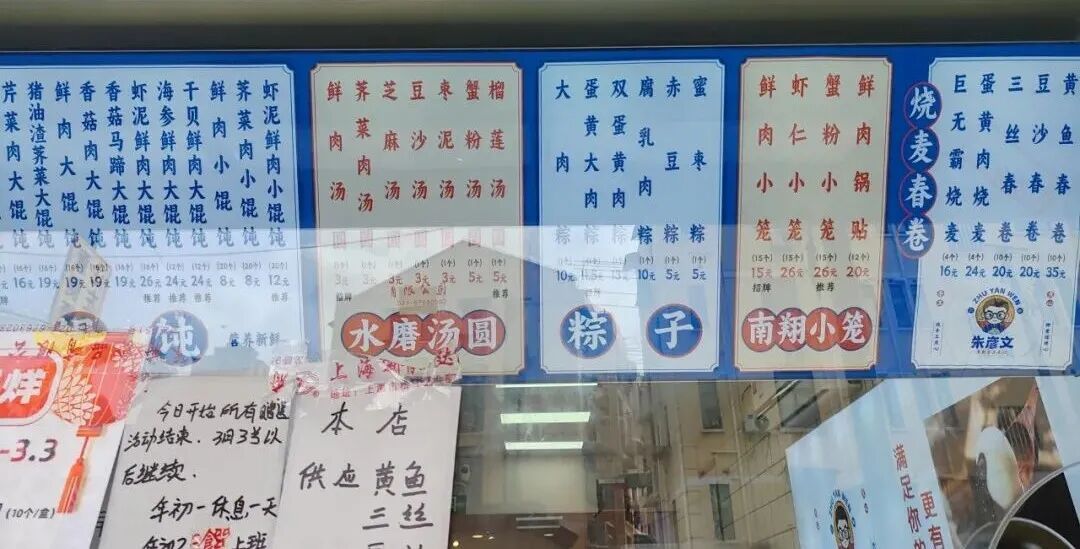 芹菜肉大馄饨
猪油渣荠菜大馄饨
鲜肉大馄饨
香菇肉大馄饨
香菇马蹄大馄饨
虾泥鲜肉大馄饨
海参鲜肉大馄饨
干贝鲜肉大馄饨
鲜肉小馄饨 8元
荠菜肉小馄饨 8元
虾泥鲜肉小馄饨 12元
推荐 推荐
饨
营养新鲜
鲜肉汤圆 3元 招牌
荠菜肉汤圆 3元
芝麻汤圆 3元
豆沙汤圆 3元
枣泥汤圆 3元
蟹粉汤圆 5元
榴莲汤圆 5元 推荐
水磨汤圆
大肉粽 (1个) 10元
蛋黄大肉粽
双蛋黄肉粽 13元
腐乳肉粽 (1个) 10元
赤豆粽 (1个) 5元
蜜枣粽 (1个) 5元
粽子
鲜肉小笼 (15个) 15元 招牌
虾仁小笼 (15个) 26元
蟹粉小笼 (15个) 26元 推荐
鲜肉锅贴 (12个) 20元
南翔小笼
烧麦春卷
巨无霸烧麦 (4个) 16元
蛋黄肉烧麦 24元
三丝春卷 (10个) 20元
豆沙春卷 (10个) 20元
黄鱼春卷 35元
ZHU YAN WEN
朱彦文
-3.3
(10个/盒)
今日开始所有赠送
活动结束.3月3号以
后继续.
年初一休息一天
上班
上海
本店
供应黄鱼
三丝
满足你
更有